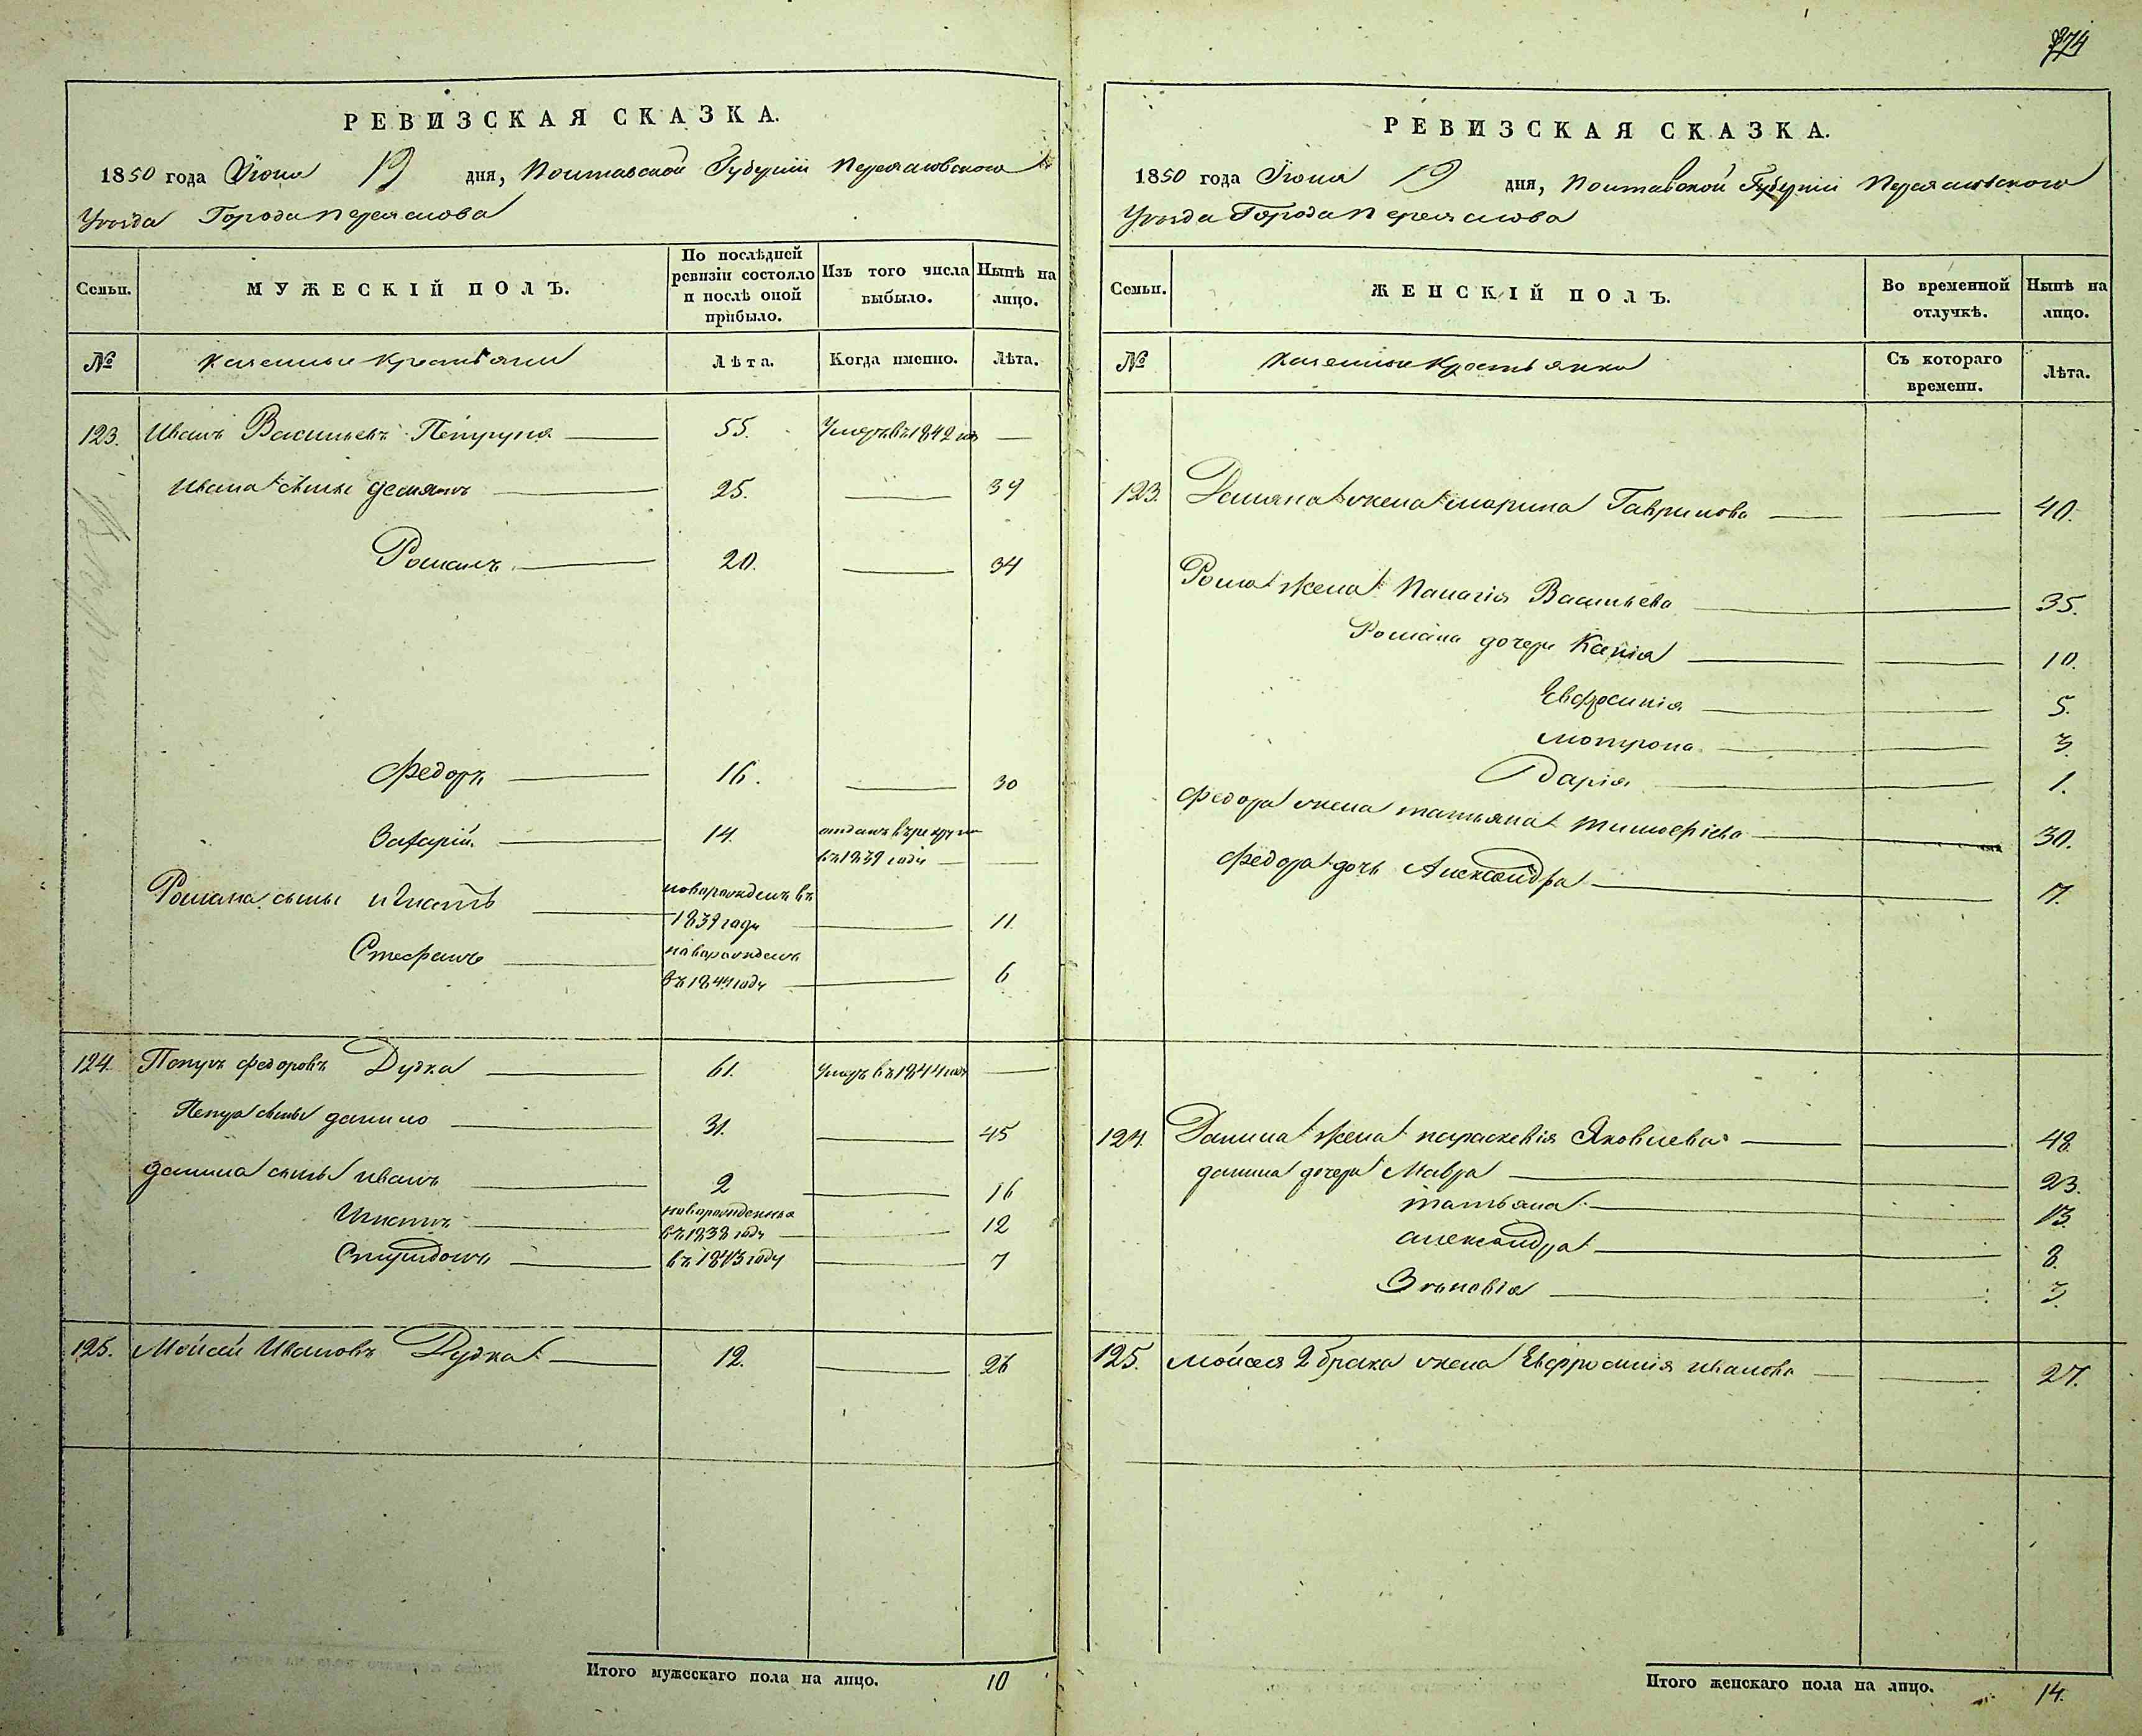 274
РЕВИЗСКАЯ СКАЗКА.
1850 года Іюня 19 дня, Полтавской Губерніи Переяславского
Уѣзда Города Переяслова
Семьи.
МУЖЕСКІЙ ПОЛЪ.
По послѣдней ревизіи состояло и послѣ оной прибыло.
Изъ того числа выбыло.
Нынѣ на лицо.
№ Казенные Крестьяне Лѣта. Когда именно. Лѣта.
123. Иванъ Васильевъ Петруня 55. Умеръ въ 1842 год
Ивана сыны Демянъ 25. 39
Романъ 20. 34
Федоръ 16. 30
Захарій 14. отданъ въ рекруты
въ 1839 году
Романа сыны Игнатъ новорожденъ въ
1839 году 11.
Стефанъ новорожденъ
въ 1844 году 6
124. Петръ Федоровъ Дудка 61. Умеръ въ 1844 год
Петра сынъ Данило 31. 45
Данила сынъ Иванъ 2 16
Игнатъ новорожденны
въ 1838 году 12
Спиридонъ въ 1843 году 7
125. Мойсей Ивановъ Дудка 12. 26
Итого мужескаго пола на лицо. 10
РЕВИЗСКАЯ СКАЗКА.
1850 года Іюня 19 дня, Полтавской Губерніи Переяславского
Уѣзда Города Переяслова
Семьи.
ЖЕНСКІЙ ПОЛЪ.
Во временной отлучкѣ.
Нынѣ на лицо.
№ Казенные Крестьянки Съ котораго времени. Лѣта.
123. Демяна жена Марина Гаврилова 40.
Рома жена Палагія Васильева 35.
Романа дочери Ксенія 10.
Евфросинія 5.
Мотрона 3.
Дарія 1.
Федора жена Татьяна Тимофієва 30.
Федора дочь Александра 7.
124. Данила жена Параскевія Яковлева 48.
Данила дочери Мавра 23.
Татьяна 13.
Александра 8.
Зѣновія 3.
125. Мойсея 2 брака жена Евфросинія Иванова 27.
Итого женскаго пола на лицо. 14.